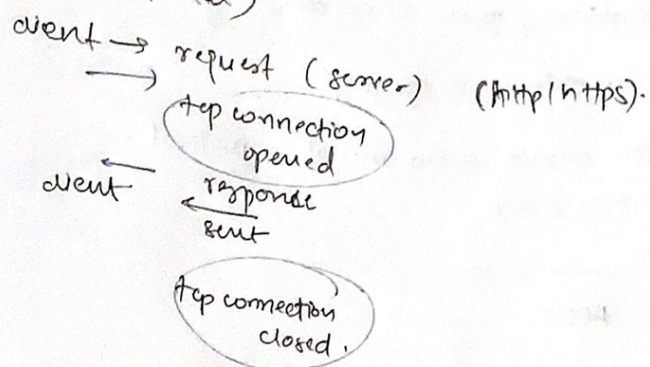 client → request (server) (http/https).
tcp connection
opened
client response
sent
tcp connection
closed.